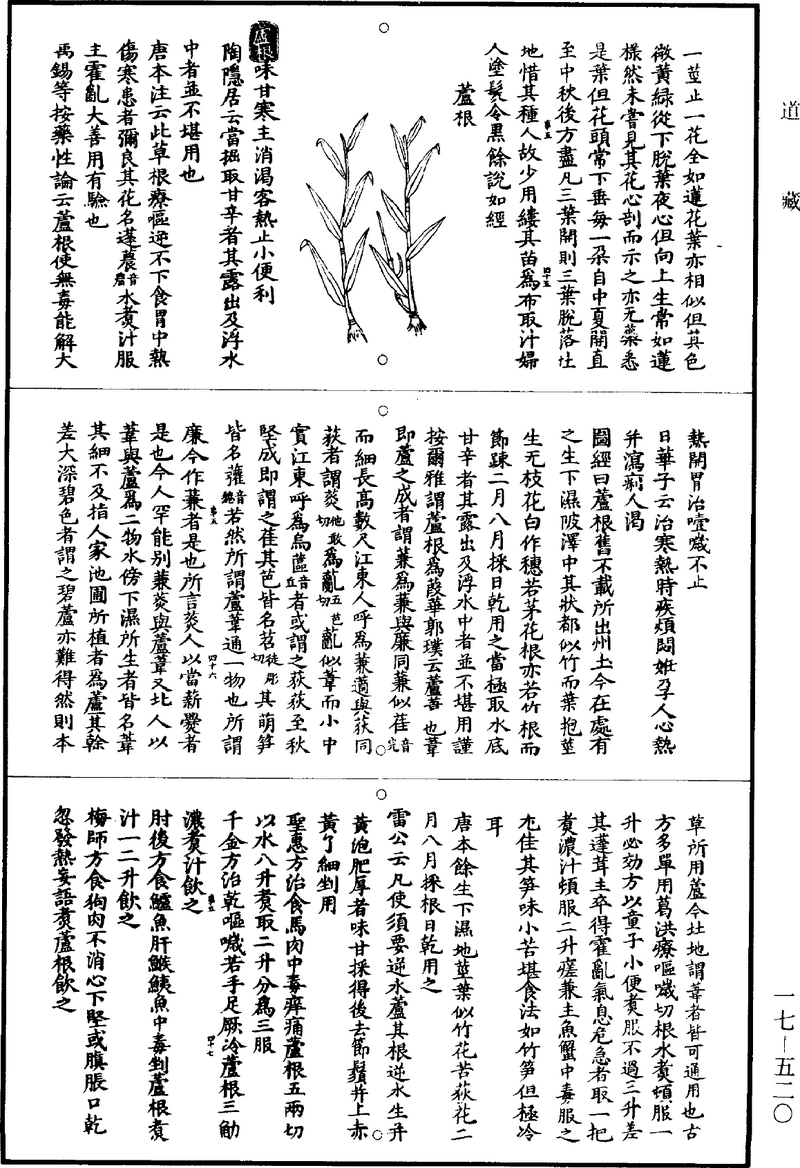 道藏
一莖止一花全如蓮花葉亦相似但其色
微黃綠從下脫葉夜心但向上生常如蓮
樣然未嘗見其花心剖而示之亦无藥悉
是葉但花頭常下垂每一朵自中夏開直
至中秋後方盡凡三葉開則三葉脫落土
地惜其種人故少用縷其苗爲布取汁婦
人塗髮令黑餘說如經
蘆根
蘆根味甘寒主消渴客熱止小便利
陶隱居云當掘取甘辛者其露出及浮水
中者並不堪用也
唐本注云此草根療嘔逆不下食胃中熱
傷寒患者彌良其花名蓬蕽音農水煮汁服
主霍亂大善用有驗也
禹錫等按藥性論云蘆根使無毒能解大
熱開胃治噎噦不止
日華子云治寒熱時疾煩悶妊孕人心熱
并瀉痢人渴
圖經曰蘆根舊不載所出州土今在處有
之生下濕陂澤中其狀都似竹而葉抱莖
生无枝花白作穗若茅花根亦若竹根而
節踈二月八月採日乾用之當極取水底
甘辛者其露出及浮水中者並不堪用謹
按爾雅謂蘆根爲葭華郭璞云蘆葦也葦
即蘆之成者謂蒹爲蒹與廉同蒹似萑音完
而細長高數尺江東人呼爲蒹藡與荻同
荻者謂菼他敢切爲薍五患切薍似葦而小中
實江東呼爲烏蓲音丘者或謂之荻荻至秋
堅成即謂之萑其芭皆名苕徒彫切其萌笋
皆名虇音綣若然所謂蘆葦通一物也所謂
廉今作蒹者是也所言菼人以當薪爨者
是也今人罕能別蒹菼與蘆葦又北人以
葦與蘆爲二物水傍下濕所生者皆名葦
其細不及指人家池圃所植者爲蘆其榦
差大深碧色者謂之碧蘆亦難得然則本
草所用蘆今北地謂葦者皆可通用也古
方多單用葛洪療嘔噦切根水煮頓服一
升必効方以童子小便煮服不過三升差
其蓬茸主卒得霍亂氣息危急者取一把
煮濃汁頓服二升瘥兼主魚蟹中毒服之
尤佳其笋味小苦堪食法如竹笋但極冷
耳
唐本餘生下濕地莖葉似竹花苦荻花二
月八月採根日乾用之
雷公云凡使須要逆水蘆其根逆水生并
黃泡肥厚者味甘採得後去節鬚并上赤
黃了細剉用
聖惠方治食馬肉中毒痒痛蘆根五兩切
以水八升煮取二升分爲三服
千金方治乾嘔噦若手足厥冷蘆根三觔
濃煮汁飲之
肘後方食鱸魚肝鯸鮧魚中毒剉蘆根煮
汁一二升飲之
梅師方食狗肉不消心下堅或腹脹口乾
忽發熱妄語煮蘆根飲之
一七—五二〇